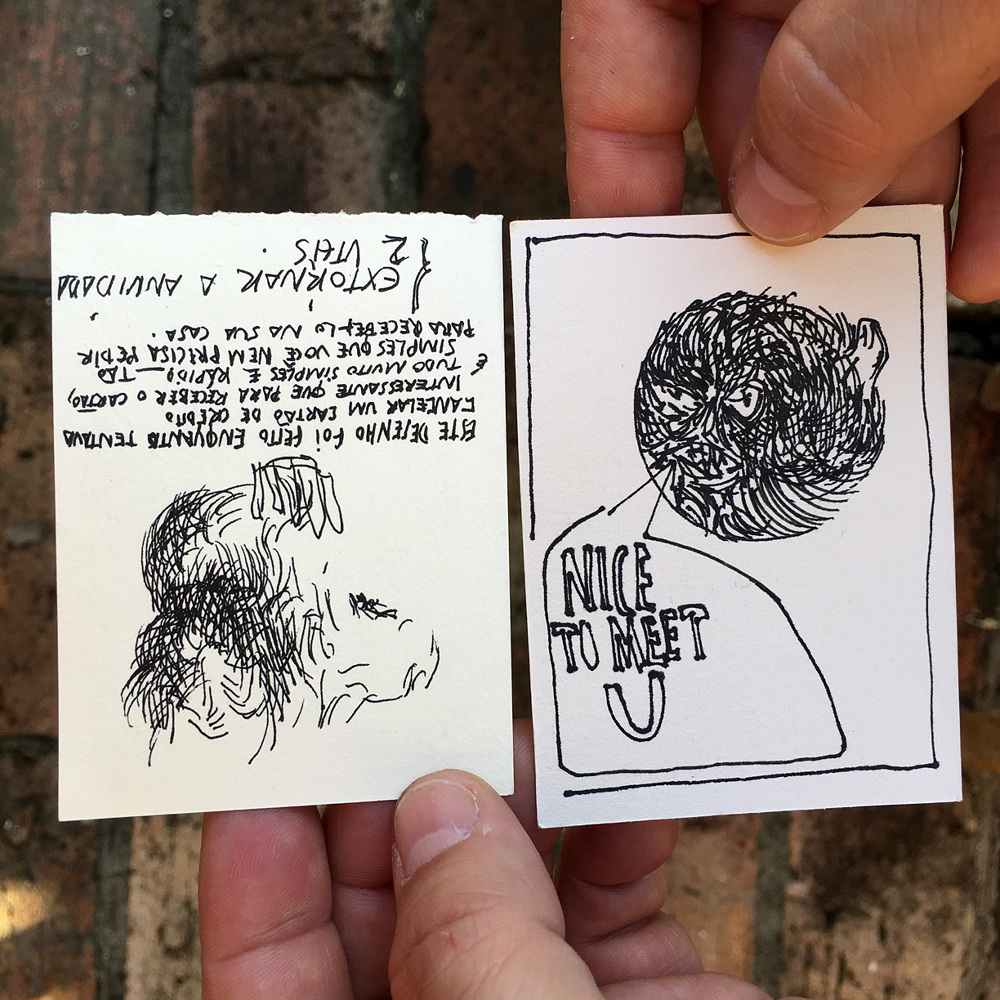 ESTE DESENHO FOI FEITO ENQUANTO TENTAVA
CANCELAR UM CARTÃO DE CRÉDITO
INTERESSANTE QUE PARA RECEBER O CARTÃO,
É TUDO MUITO SIMPLES E RÁPIDO — TÃO
SIMPLES QUE VOCÊ NEM PRECISA PEDIR
PARA RECEBÊ-LO NA SUA CASA.
EXTORNAR A
2
NICE
TO MEET
U